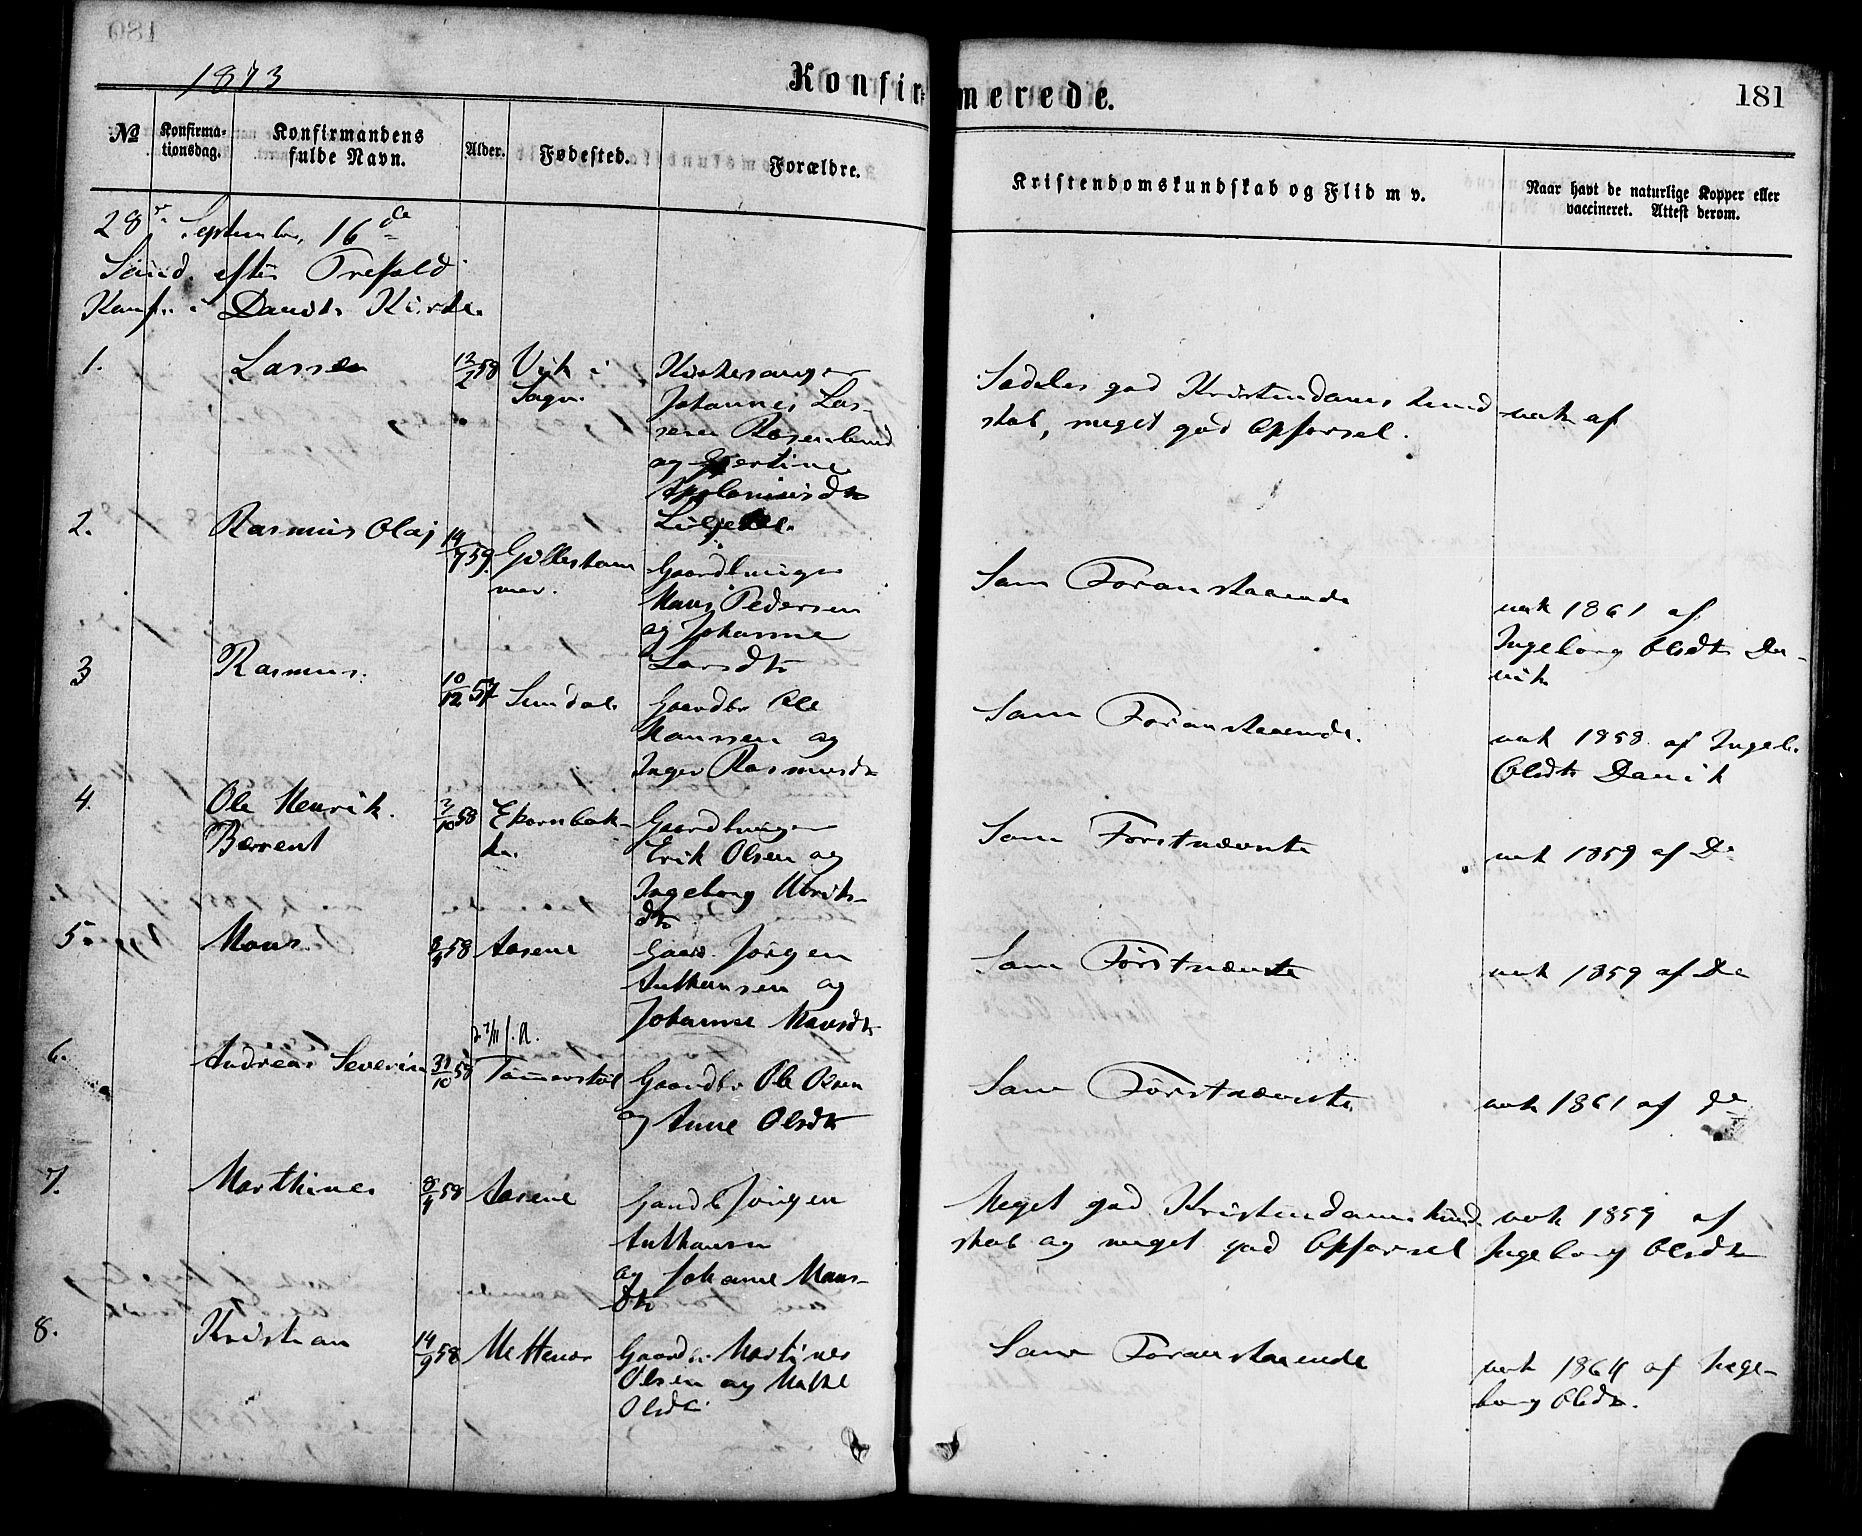 180
1873
Konfirmerede.
181
№
Konfirma-
tionsdag.
Konfirmandens
fulde Navn.
Alder.
Fødested.
Forældre.
Kristendomskundskab og Flid m v.
Naar havt de naturlige Kopper eller
vaccineret. Attest derom.
28de September, 16de
Sønd. efter Trefold.
Konf. i Daviks Kirke.
1.
Lassen
12/2 58
Vik i
Sogn.
Kirkesanger
Johannes Las-
sen Rosenlund
og
Særdeles god Kristendoms Kund
skab, meget god Opførsel.
vak af
2.
Rasmus Olaj
14/7 59
Gulleham
mer.
Gaardbruger
Hans Pedersen
og Johanne
Larsdtr
Som Foranstaaende
vak 1861 af
Ingeborg Olsdtr Da-
vik
3
Rasmus.
10/12 57
Sundal
Gaardbr Ole
Hanssen og
Inger Rasmusdtr
Som Foranstaaende.
vak 1858 af Ingeb.
Olsdtr Davik
4.
Ole Henrik
Berrent
3/10 58
Ekornbak-
ke.
Gaardbruger
Erik Olsen og
Ingeborg
dtr
Som Førstnævnte
vak 1859 af Do
5.
Mons
8/4 58
Aasene
Gaard. Jørgen
Anthonsen og
Johanne Monsdtr
Som Førstnævnte
vak 1859 af Do
6.
Andreas Severin
31/10 58
27/11 f. A.
Tømmerstøl
Gaardbr Ole Olsen
og Anne Olsdtr
Som Førstnævnte
vak 1861 af Do
7.
Marthines
8/4 58
Aasene
Gaardb Jørgen
Anthonsen
og Johanne Mons-
dtr
Meget god Kristendomskund
skab og meget god Opførsel
vak 1859 af
Ingeborg Olsdtr
8.
Kristian
14/9 58
Mettenes
Gaardbr. Martines
Olsen og
Olsdtr
Som Foranstaaende
vak 1864 af Inge-
borg Olsdtr.